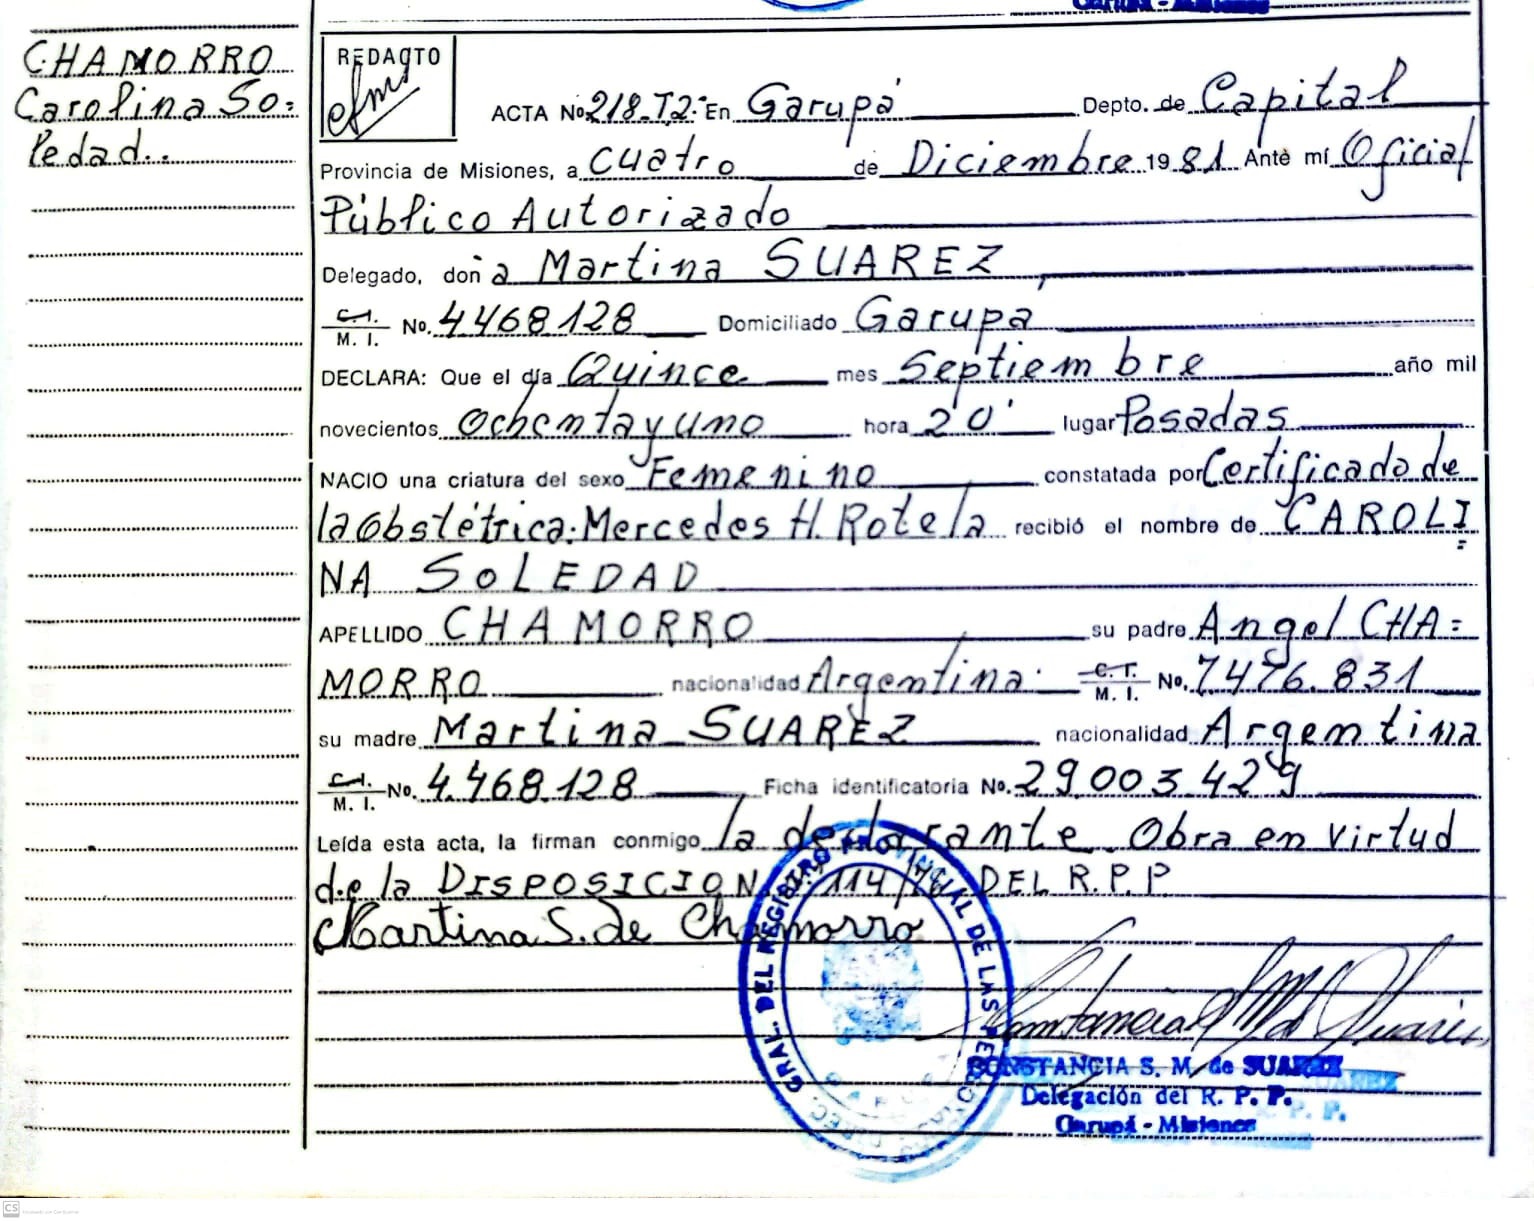 Garupá - Misiones
CHAMORRO
Carolina So=
ledad..
REDACTO
ACTA No. 218.T2: En Garupá Depto. de Capital
Provincia de Misiones, a Cuatro de Diciembre 1981 Ante mí Oficial
Público Autorizado
Delegado, doña Martina SUAREZ
C.I.
M. I. No. 4468128 Domiciliado Garupá
DECLARA: Que el día Quince mes Septiembre año mil
novecientos Ochenta y uno hora 20' lugar Posadas
NACIO una criatura del sexo Femenino constatada por Certificado de
la Obstétrica: Mercedes H. Rotela recibió el nombre de CAROLI=
NA SOLEDAD
APELLIDO CHAMORRO su padre Angel CHA=
MORRO nacionalidad Argentina. C. I.
M. I. No. 7476.831
su madre Martina SUAREZ nacionalidad Argentina
C.I.
M. I. No. 4.468.128 Ficha identificatoria No. 29.003.429
Leída esta acta, la firman conmigo la declarante. Obra en virtud
de la DISPOSICION DEL R.P.P
Martina S. de Chamorro
DIREC. GRAL. DEL REGISTRO PROVINCIAL DE LAS PERSONAS
CONSTANCIA S. M. de SUAREZ
Delegación del R. P. P.
Garupá - Misiones
CS